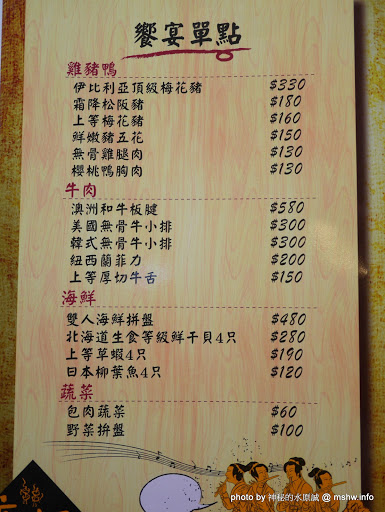 饗宴單點
雞豬鴨
伊比利亞頂級梅花豬 $330
霜降松阪豬 $180
上等梅花豬 $160
鮮嫩豬五花 $150
無骨雞腿肉 $130
櫻桃鴨胸肉 $130
牛肉
澳洲和牛板腱 $580
美國無骨牛小排 $300
韓式無骨牛小排 $300
紐西蘭菲力 $200
上等厚切牛舌 $150
海鮮
雙人海鮮拼盤 $480
北海道生食等級鮮干貝4只 $280
上等草蝦4只 $190
日本柳葉魚4只 $120
蔬菜
包肉蔬菜 $60
野菜拚盤 $100
photo by 神秘的水原誠 @ mshw.info